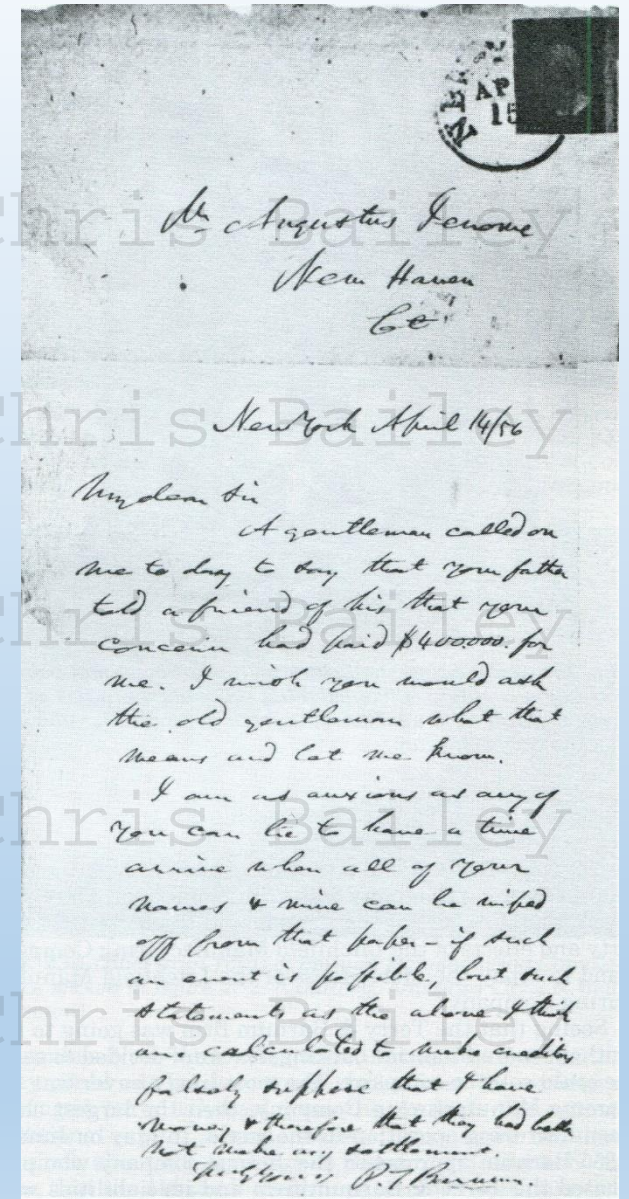 NEW
AP
15
Mr Augustus Jerome
New Haven
Ct
New York April 14/56
My dear Sir
A gentleman called on
me to day to say that your father
told a friend of his that your
concern had paid $400000. for
me. I wish you would ask
the old gentleman what that
means and let me know.
I am as anxious as any of
you can be to have a time
arrive when all of your
names & mine can be wiped
off from that paper - if such
an event is possible, but such
statements as the above I think
are calculated to make creditors
falsely suppose that I have
money & therefore that they had better
not make any settlement.
Truly yours, P. T. Barnum
Chris Bailey
Chris Bailey
Chris Bailey
Chris Bailey
Chris Bailey